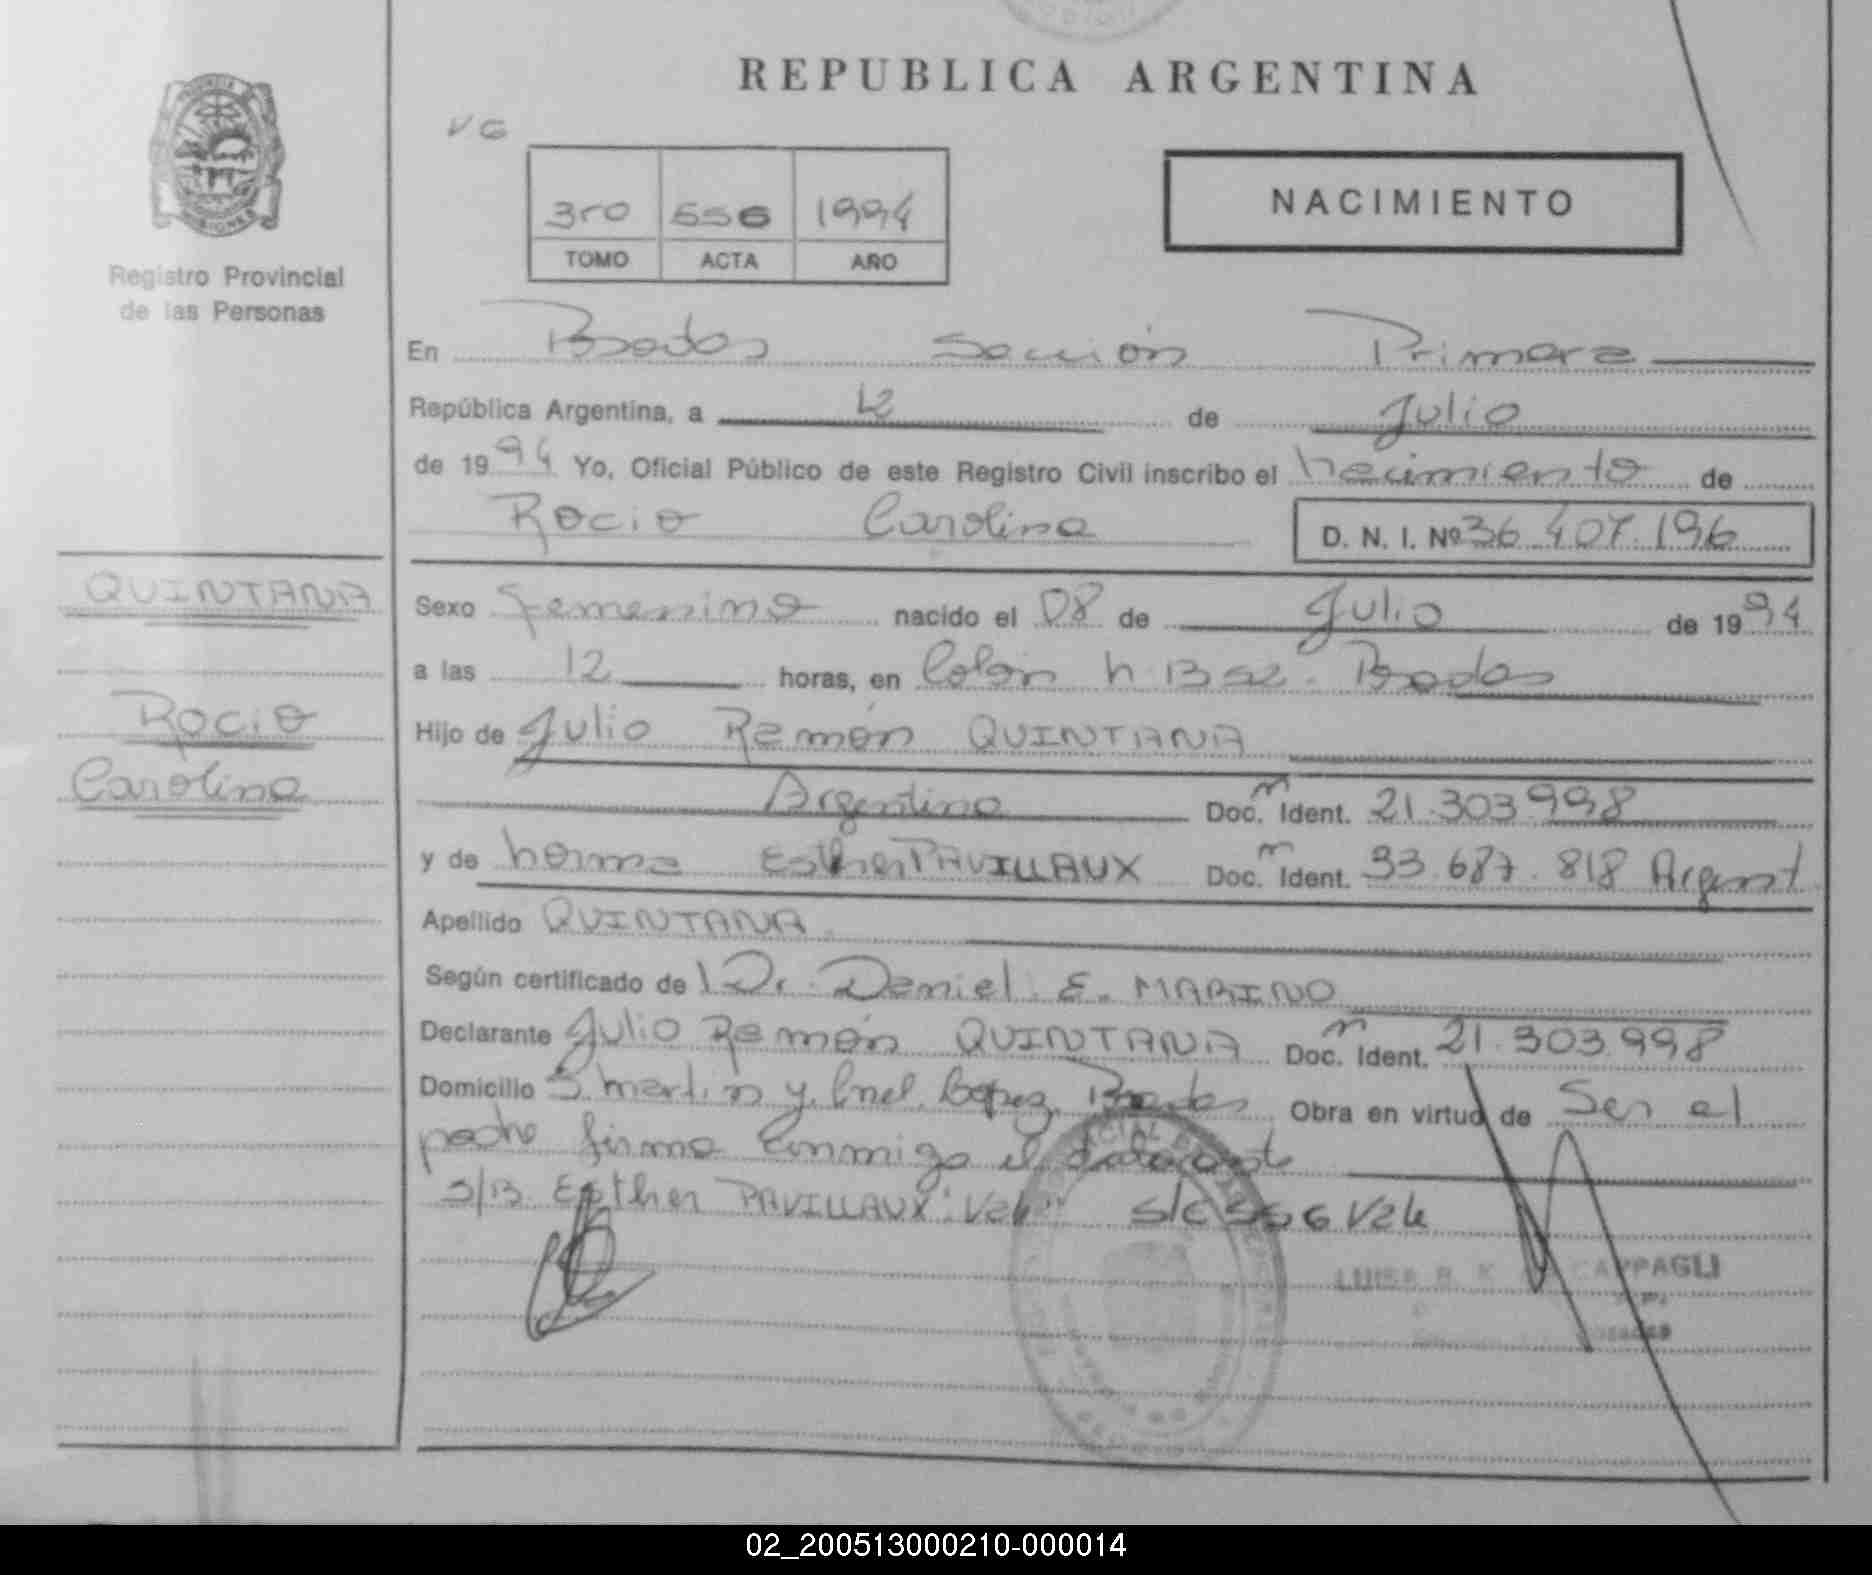 REPUBLICA ARGENTINA
VG
3ro 556 1994
TOMO ACTA AÑO
NACIMIENTO
Registro Provincial
de las Personas
En Psadas Sección Primera
República Argentina, a 12 de Julio
de 1994 Yo, Oficial Público de este Registro Civil inscribo el nacimiento de
Rocio Carolina D. N. I. Nº 36.407.196
QUINTANA
Rocio
Carolina
Sexo femenino nacido el 08 de Julio de 1994
a las 12 horas, en Colón n. 1352. Psadas
Hijo de Julio Ramón QUINTANA
Argentino Doc. n Ident. 21.303.998
y de norma Esther PAVILLAUX Doc. n Ident. 33.687.818 Argent
Apellido QUINTANA
Según certificado de Dr. Daniel E. MARINO
Declarante Julio Ramón QUINTANA Doc. n Ident. 21.303.998
Domicilio S. Martin y Cnel. López Psadas Obra en virtud de Ser el
padre firma conmigo el declarante
S/B. Esther PAVILLAUX "Vale" S/C 556 Vale
LUISA R. K. CAPPAGLI
02_200513000210-000014